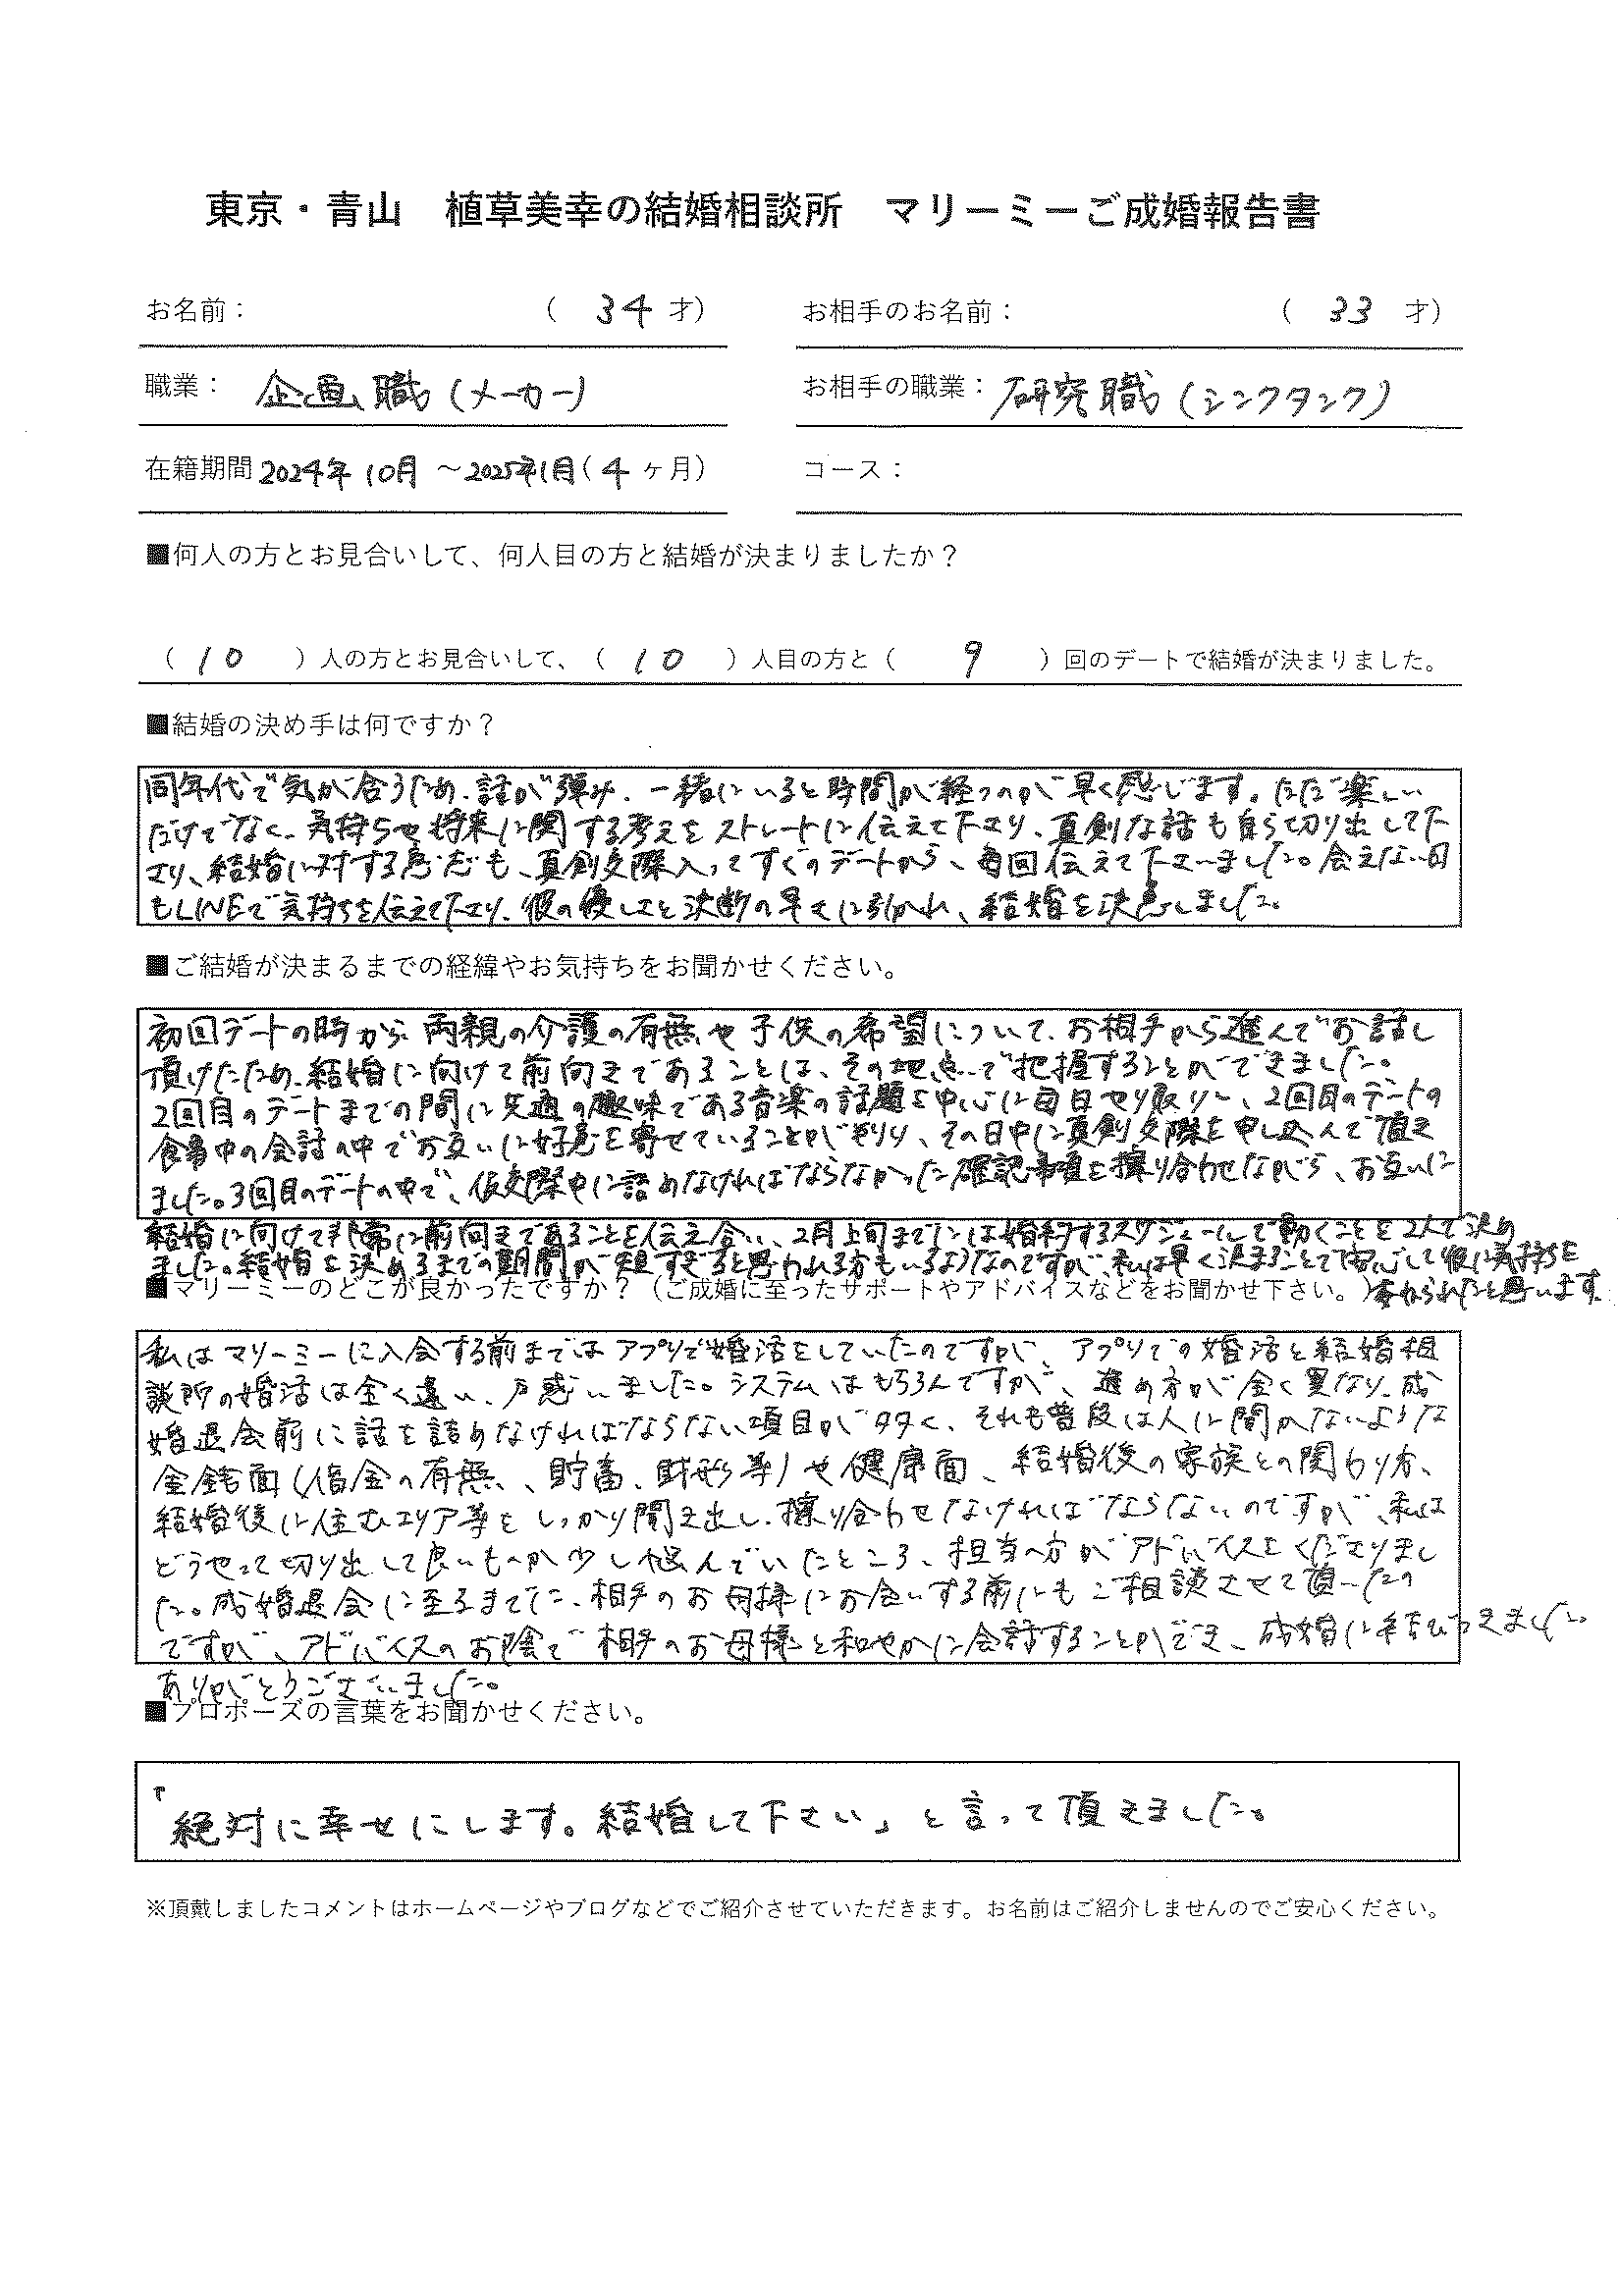 東京・青山　植草美幸の結婚相談所　マリーミーご成婚報告書
お名前：　（ 34 才）
お相手のお名前：　（ 33 才）
職業：　企画職（メーカー）
お相手の職業：研究職（シンクタンク）
在籍期間 2024年 10月 ～2025年1月（ 4 ヶ月）
コース：
■何人の方とお見合いして、何人目の方と結婚が決まりましたか？
（ 10 ）人の方とお見合いして、（ 10 ）人目の方と（ 9 ）回のデートで結婚が決まりました。
■結婚の決め手は何ですか？
同年代で気が合うため、話が弾み、一緒にいると時間が経つのが早く感じます。ただ楽しい
だけでなく、気持ちや将来に関する考えをストレートに伝えて下さり、真剣な話も自ら切り出して下
さり、結婚に対する意志も、真剣交際入ってすぐのデートから、毎回伝えて下さいました。会えない日
もLINEで気持ちを伝えて下さり、彼の優しさと決断の早さに引かれ、結婚を決意しました。
■ご結婚が決まるまでの経緯やお気持ちをお聞かせください。
初回デートの時から、両親の介護の有無や子供の希望について、お相手から進んでお話し
頂けたため、結婚に向けて前向きであることは、その地点で把握することができました。
2回目のデートまでの間に共通の趣味である音楽の話題を中心に毎日やり取りし、2回目のデートの
食事中の会話の中でお互いに好意を寄せていることが判り、その日中に真剣交際を申し込んで頂き
ました。3回目のデートの中で、仮交際中に詰めなければならなかった確認事項を擦り合わせながら、お互いに
結婚に向けて非常に前向きであることを伝え合い、2月上旬までには婚約するスケジュールにして動くことを2人で決め
ました。結婚を決めるまでの期間が短すぎると思われる方もいるようなのですが、私は早く決まることで安心して彼に気持ちを
■マリーミーのどこが良かったですか？（ご成婚に至ったサポートやアドバイスなどをお聞かせ下さい。）寄せられたと思います。
私はマリーミーに入会する前まではアプリで婚活をしていたのですが、アプリでの婚活と結婚相
談所の婚活は全く違い、戸惑いました。システムはもちろんですが、進め方が全く異なり、成
婚退会前に話を詰めなければならない項目が多く、それも普段は人に聞かないような
金銭面（借金の有無、貯蓄、財形等）や健康面、結婚後の家族との関わり方、
結婚後に住むエリア等をしっかり聞き出し、擦り合わせなければならないのですが、私は
どうやって切り出して良いものか少し悩んでいたところ、担当の方がアドバイスをくださりまし
た。成婚退会に至るまでに、相手のお母様にお会いする前にもご相談させて頂いたの
ですが、アドバイスのお陰で相手のお母様と和やかに会話することができ、成婚に結びつきました。
ありがとうございました。
■プロポーズの言葉をお聞かせください。
「絶対に幸せにします。結婚して下さい」と言って頂きました。
※頂戴しましたコメントはホームページやブログなどでご紹介させていただきます。お名前はご紹介しませんのでご安心ください。